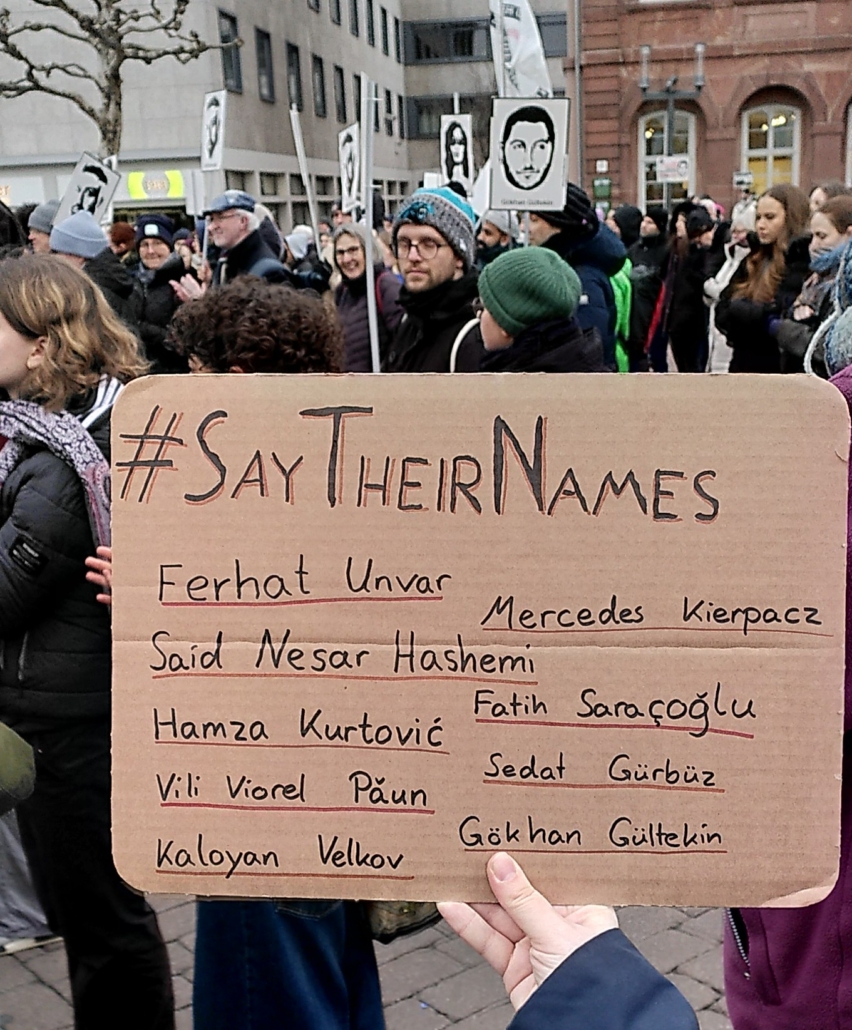 Gökhan Gültekin
#SAYTHEIRNAMES
Ferhat Unvar
Mercedes Kierpacz
Said Nesar Hashemi
Fatih Saraçoğlu
Hamza Kurtović
Sedat Gürbüz
Vili Viorel Păun
Gökhan Gültekin
Kaloyan Velkov